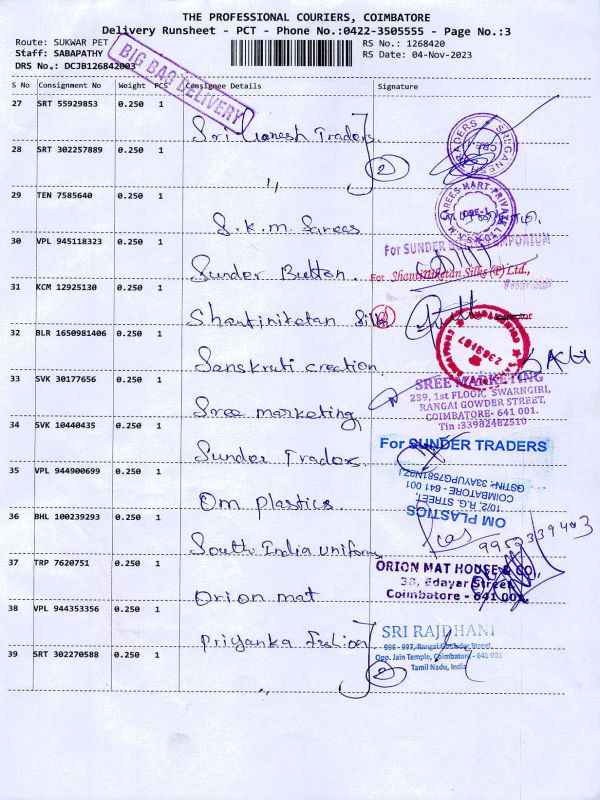 THE PROFESSIONAL COURIERS, COIMBATORE
Delivery Runsheet - PCT - Phone No.:0422-3505555 - Page No.:3
Route: SUKWAR PET
Staff: SABAPATHY
DRS No.: DCJB126842003
RS No.: 1268420
RS Date: 04-Nov-2023
BIG BAG DELIVERY
S No Consignment No Weight PCS Consignee Details Signature
27 SRT 55929853 0.250 1 Sri Ganesh Traders
SRI GANESH TRADERS
CBE
28 SRT 302257889 0.250 1 "
2
29 TEN 7585640 0.250 1 S.K.M. Sarees
S.K.M. SAREES MART PRIVATE LTD
CBE-1
30 VPL 945118323 0.250 1 Sunder Button.
For SUNDER BUTTON EMPORIUM
Proprietor
31 KCM 12925130 0.250 1 Shantiniketan Silk
For Shantiniketan Silks (P) Ltd.,
Director
32 BLR 1650981406 0.250 1 Sanskruti creation
33 SVK 30177656 0.250 1 Sree marketing
SREE MARKETING
239, 1st FLOOR, SWARNGIRI,
RANGAI GOWDER STREET,
COIMBATORE- 641 001.
Tin :33982482510
34 SVK 10440435 0.250 1 Sunder Traders.
For SUNDER TRADERS
35 VPL 944900699 0.250 1 Om plastics.
OM PLASTICS
10/2, R.G. STREET,
COIMBATORE - 641 001
36 BHL 100239293 0.250 1 South India uniforms
37 TRP 7620751 0.250 1 Orion mat
ORION MAT HOUSE & CO,
38, Edayar Street
Coimbatore - 641 001
38 VPL 944353356 0.250 1 Priyanka Fashion
SRI RAJDHANI
996 - 997, Rangai Gowder Street,
Opp. Jain Temple, Coimbatore - 641 001
Tamil Nadu, India
39 SRT 302270588 0.250 1 "
2